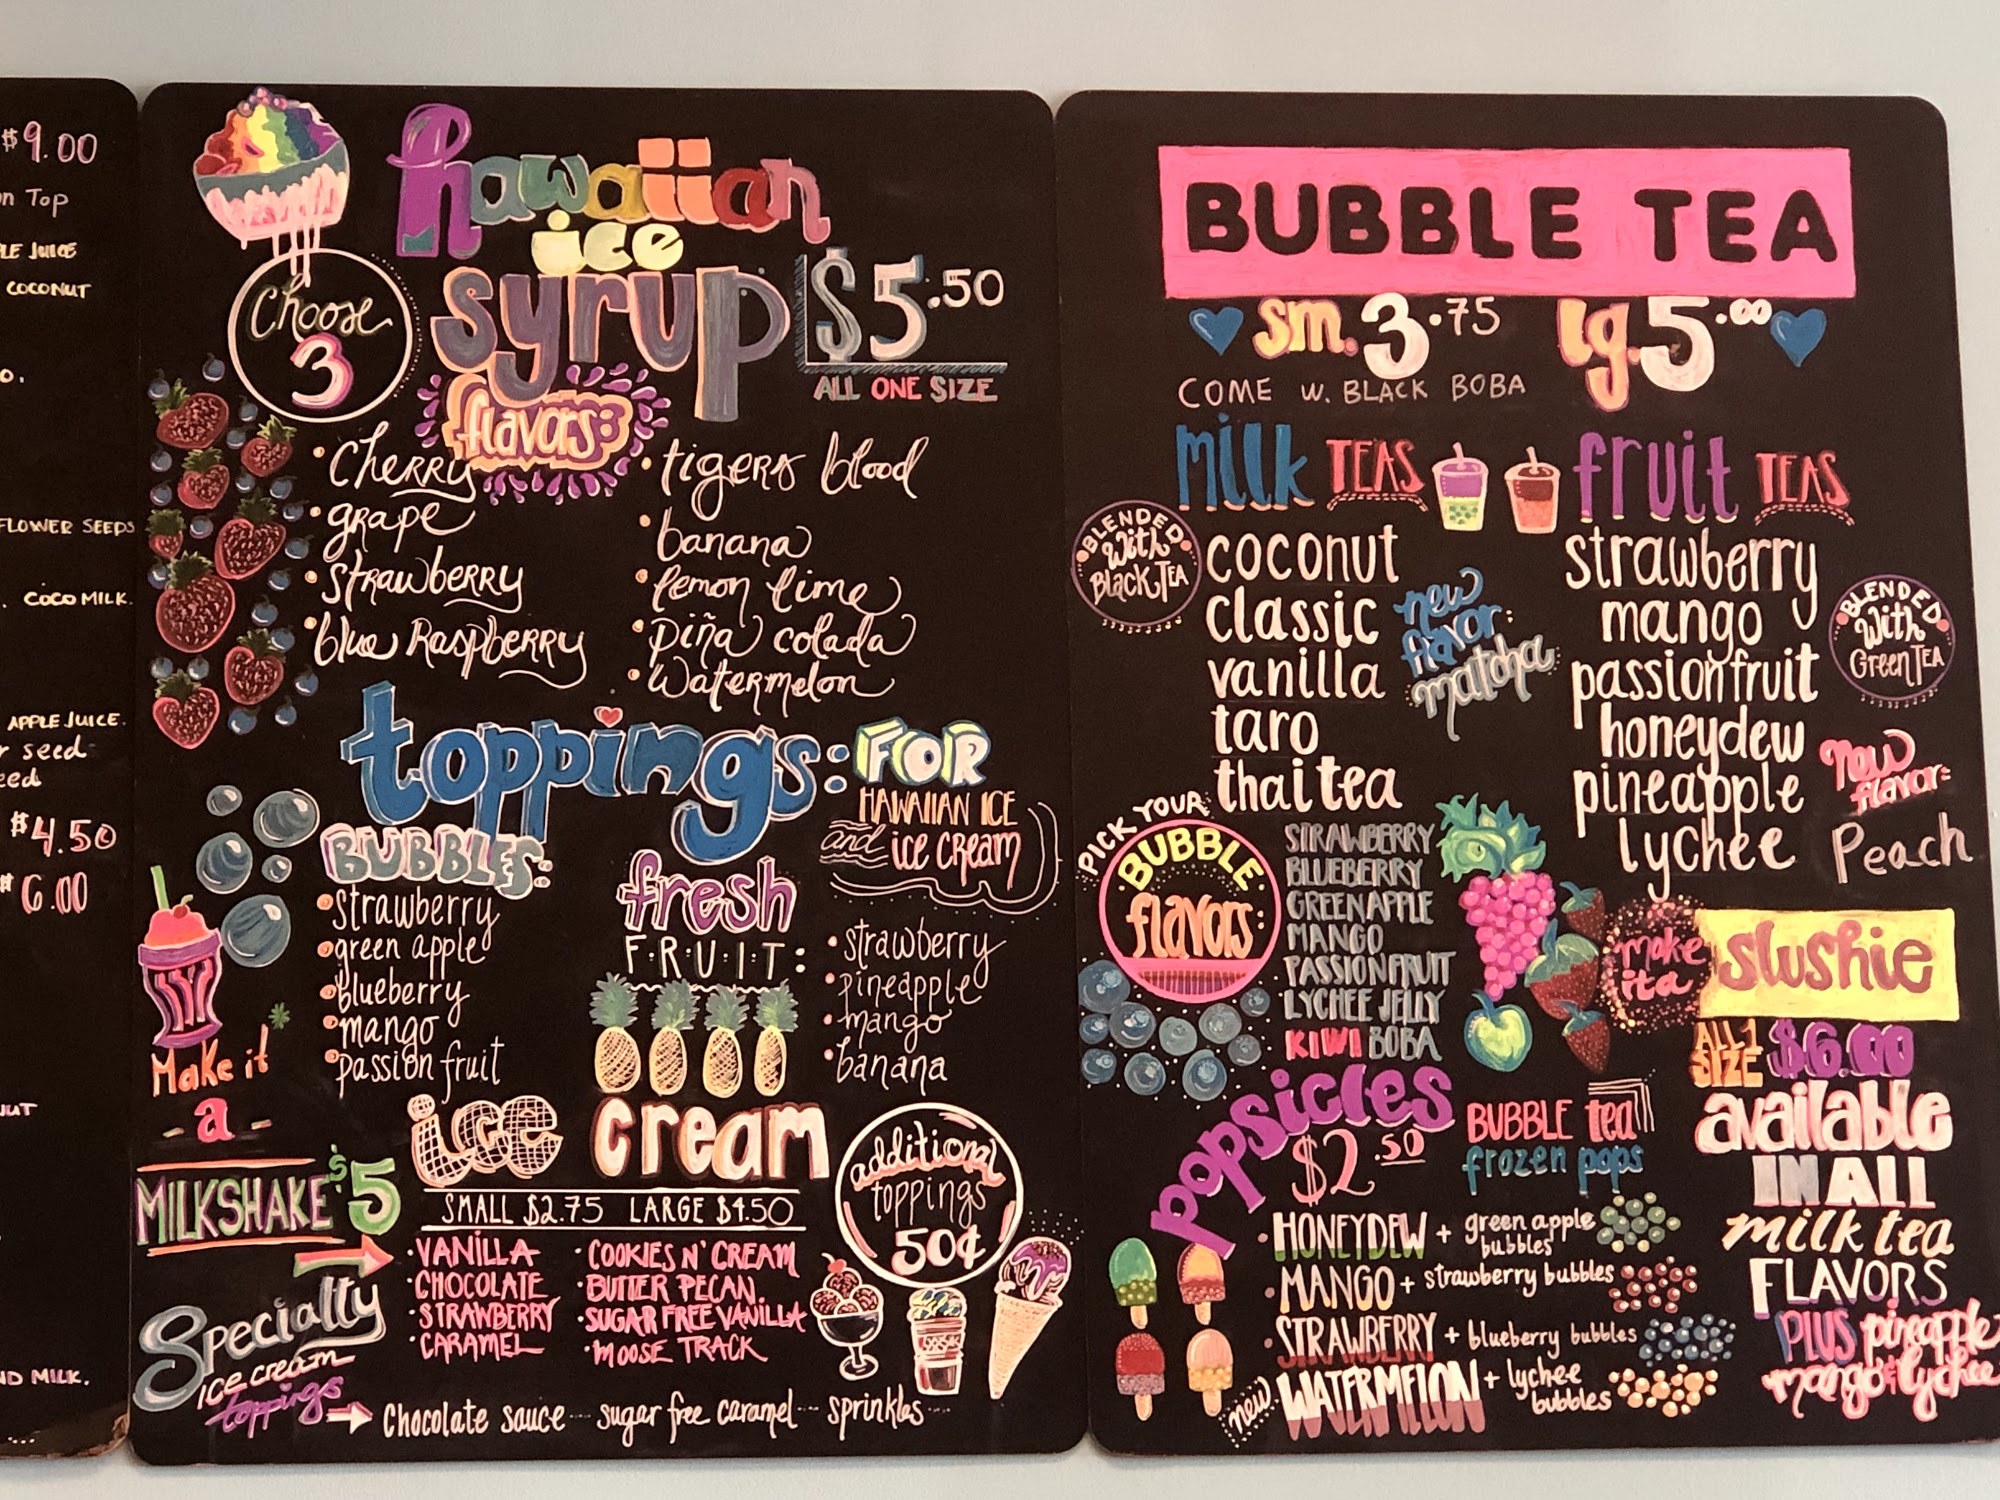 $9.00
on Top
LE JUICE
COCONUT
O.
FLOWER SEEDS
. COCO MILK.
APPLE JUICE.
r seed
eed
$4.50
$6.00
NUT
ND MILK.
hawaiian
ice
syrup
flavors:
Choose
3
$5.50
ALL ONE SIZE
• Cherry
• grape
• Strawberry
• blue Raspberry
• tigers blood
• banana
• lemon lime
• piña colada
• Watermelon
toppings:
FOR
HAWAIIAN ICE
and ice cream
BUBBLES:
• strawberry
• green apple
• blueberry
• mango
• passion fruit
fresh
F·R·U·I·T:
• strawberry
• pineapple
• mango
• banana
Make it
- a -
MILKSHAKE $5
ice cream
SMALL $2.75 LARGE $4.50
• VANILLA
• CHOCOLATE
• STRAWBERRY
CARAMEL
• COOKIES N' CREAM
• BUTTER PECAN
• SUGAR FREE VANILLA
• MOOSE TRACK
additional
toppings
50¢
Specialty
ice cream
toppings
Chocolate sauce -- sugar free caramel -- sprinkles
BUBBLE TEA
sm. 3.75 lg. 5.00
COME W. BLACK BOBA
milk TEAS
BLENDED
With
Black TEA
coconut
classic
vanilla
taro
thai tea
new
flavor:
matcha
fruit TEAS
strawberry
mango
passionfruit
honeydew
pineapple
lychee
BLENDED
With
Green TEA
New
flavor:
Peach
PICK YOUR
BUBBLE
flavors
STRAWBERRY
BLUEBERRY
GREEN APPLE
MANGO
PASSIONFRUIT
LYCHEE JELLY
KIWI BOBA
make
it a
slushie
ALL 1
SIZE
$6.00
available
IN ALL
milk tea
FLAVORS
PLUS pineapple
mango & lychee
popsicles
$2.50
BUBBLE tea
frozen pops
• HONEYDEW + green apple
bubbles
• MANGO + strawberry bubbles
• STRAWBERRY + blueberry bubbles
new WATERMELON + lychee
bubbles